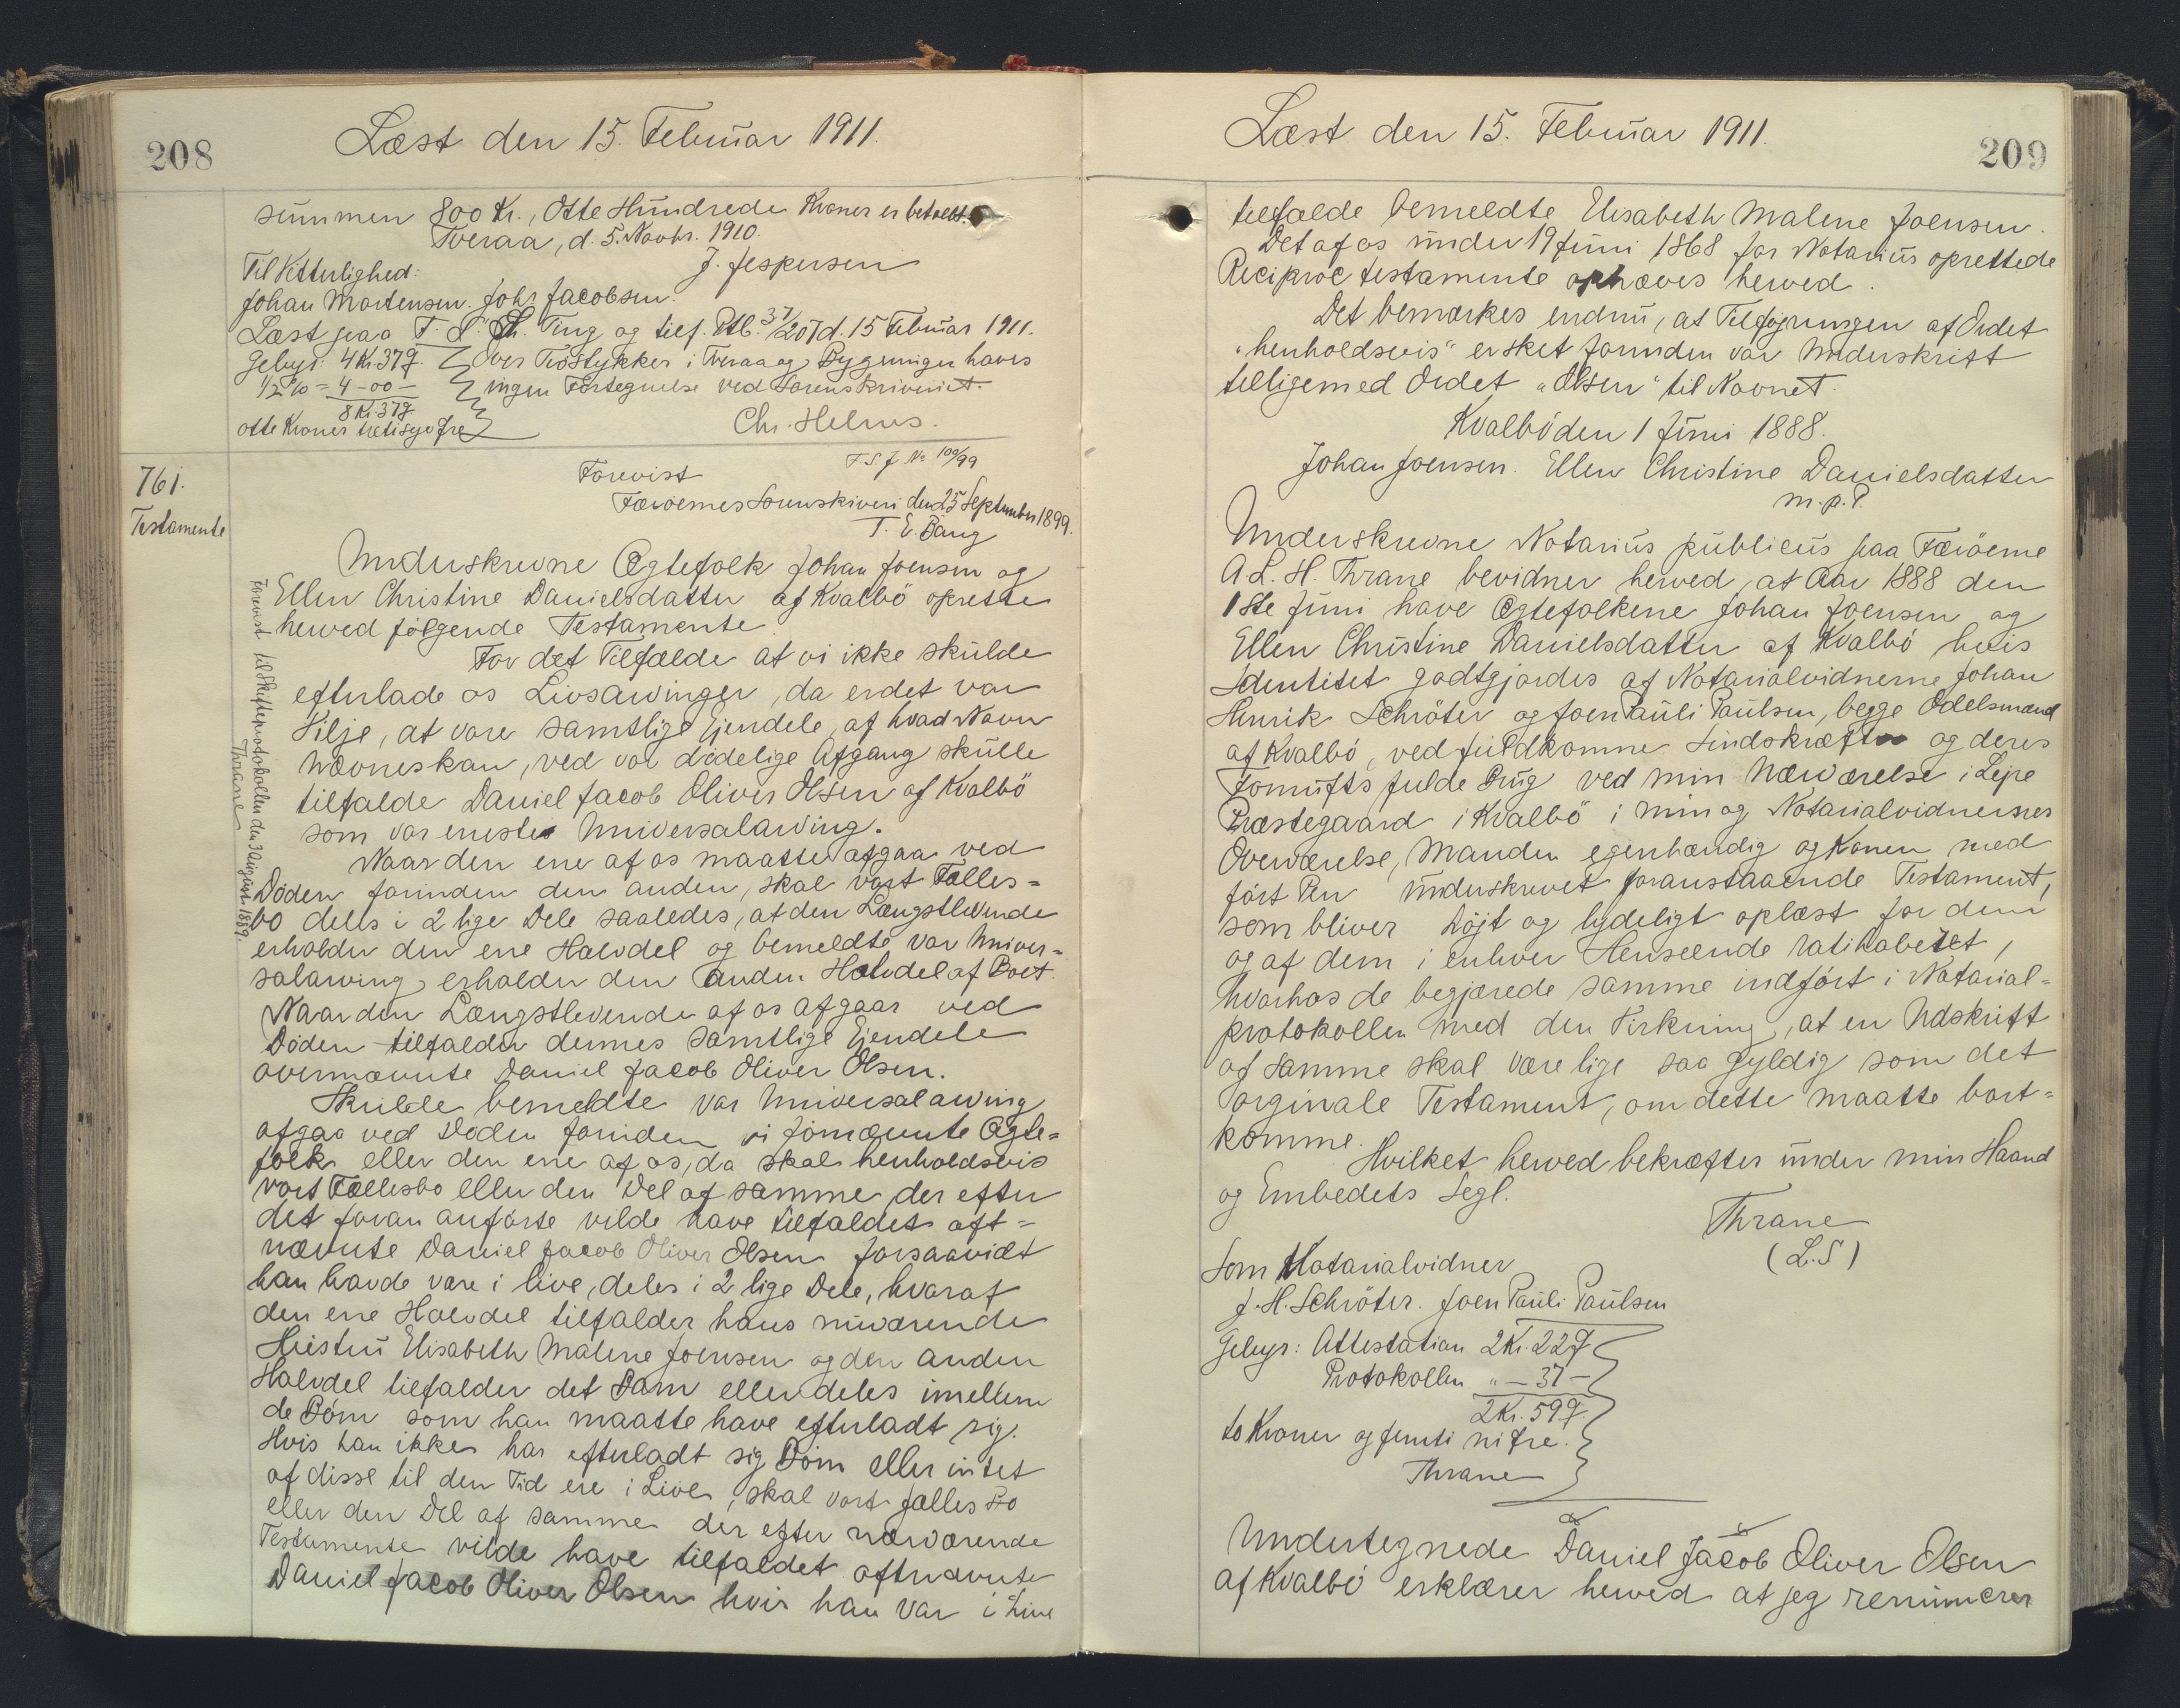 208
Læst den 15. Februar 1911.
summen 800 Kr., Otte Hundrede Kroner er betalt.
Tveraa, d. 5. Novbr. 1910.
J. Jespersen
Til Vitterlighed:
Johan Mortensen. Johs Jacobsen.
Læst paa T. S. Ting og tilf. Ptb. 37/207 d. 15 Februar 1911.
Gebyr: 4 Kr. 37 Ø.
1/2 % = 4 - 00 -
8 Kr. 37 Ø
otte Kroner tretisyv Øre
Over Træstykker i Tveraa og Bygningen haves
ingen Fortegnelse ved Sorenskriveriet.
Chr. Helms.
761.
Testamente
F. S. J. No 100/99
Forevist
Færøernes Sorenskriveri den 25 September 1899.
T. E. Bang
Underskrevne Ægtefolk Johan Joensen og
Ellen Christine Danielsdatter af Kvalbö oprette
herved følgende Testamente.
For det Tilfælde at vi ikke skulde
efterlade os Livsarvinger, da er det vor
Vilje, at vore samtlige Ejendele, af hvad Navn
nævnes kan, ved vor dødelige Afgang skulle
tilfalde Daniel Jacob Oliver Olsen af Kvalbö
som vor eneste Universalarving.
Naar den ene af os maatte afgaa ved
Døden forinden den anden, skal vort Fælles=
bo deles i 2 lige Dele saaledes, at den Længstlevende
erholder den ene Halvdel og bemeldte vor Univer=
salarving erholder den anden Halvdel af Boet.
Naar den Længstlevende af os afgaar ved
Døden tilfalder dennes samtlige Ejendele
ovennævnte Daniel Jacob Oliver Olsen.
Skulde bemeldte vor Universalarving
afgaa ved Døden forinden vi fornævnte Ægte=
folk eller den ene af os, da skal henholdsvis
vort Fællesbo eller den Del af samme der efter
det foran anførte vilde have tilfaldet oft=
nævnte Daniel Jacob Oliver Olsen forsaavidt
han havde være i live, deles i 2 lige Dele, hvoraf
den ene Halvdel tilfalder hans nuværende
Hustru Elisabeth Malene Joensen og den anden
Halvdel tilfalder det Barn eller deles imellem
de Börn som han maatte have efterladt sig.
Hvis han ikke har efterladt sig Börn eller intet
af disse til den Tid ere i Live, skal vort fælles Bo
eller den Del af samme der efter nærværende
Testamente vilde have tilfaldet oftnævnte
Daniel Jacob Oliver Olsen hvis han var i Live
Forevist til Skifteprotokollen den 3 August 1889.
Thrane
Læst den 15. Februar 1911.
209
tilfalde bemeldte Elisabeth Malene Joensen.
Det af os under 19 Juni 1868 for Notarius oprettede
Reciproc testamente ophæves herved.
Det bemærkes endnu, at Tilføjningen af Ordet
"henholdsvis" er sket forinden vor Underskrift
tilligemed Ordet "Olsen" til Navnet.
Kvalbö den 1 Juni 1888.
Johan Joensen. Ellen Christine Danielsdatter
m. p. P.
Underskrevne Notarius publicus paa Færöerne
A. L. H. Thrane bevidner herved, at Aar 1888 den
1ste Juni have Ægtefolkene Johan Joensen og
Ellen Christine Danielsdatter af Kvalbö hvis
Identitet godtgjordes af Notarialvidnerne Johan
Henrik Schröter og Joen Pauli Paulsen, begge Odelsmænd
af Kvalbö, ved fuldkomne Sindskræfter og deres
Fornufts fulde Brug ved min Nærværelse i Lejre
Præstegaard i Kvalbö i min og Notarialvidnernes
Overværelse, Manden egenhændig og Konen med
fört Pen underskrevet foranstaaende Testament,
som bliver höjt og lydeligt oplæst for dem
og af dem i enhver Henseende ratihaberet,
hvorhos de begjærede samme indfört i Notarial=
protokollen med den Virkning, at en Udskrift
af samme skal være lige saa gyldig som det
orginale Testament, om dette maatte bort=
komme.
Hvilket herved bekræftes under min Haand
og Embedets Segl.
Thrane
(L.S)
Som Notarialvidner
J. H. Schröter. Joen Pauli Paulsen
Gebyr: Attestation 2 Kr. 22 Ø
Protokollen " - 37 -
2 Kr. 59 Ø.
to Kroner og femti ni Øre.
Thrane
Undertegnede Daniel Jacob Oliver Olsen
af Kvalbö erklærer herved at jeg renuncerer